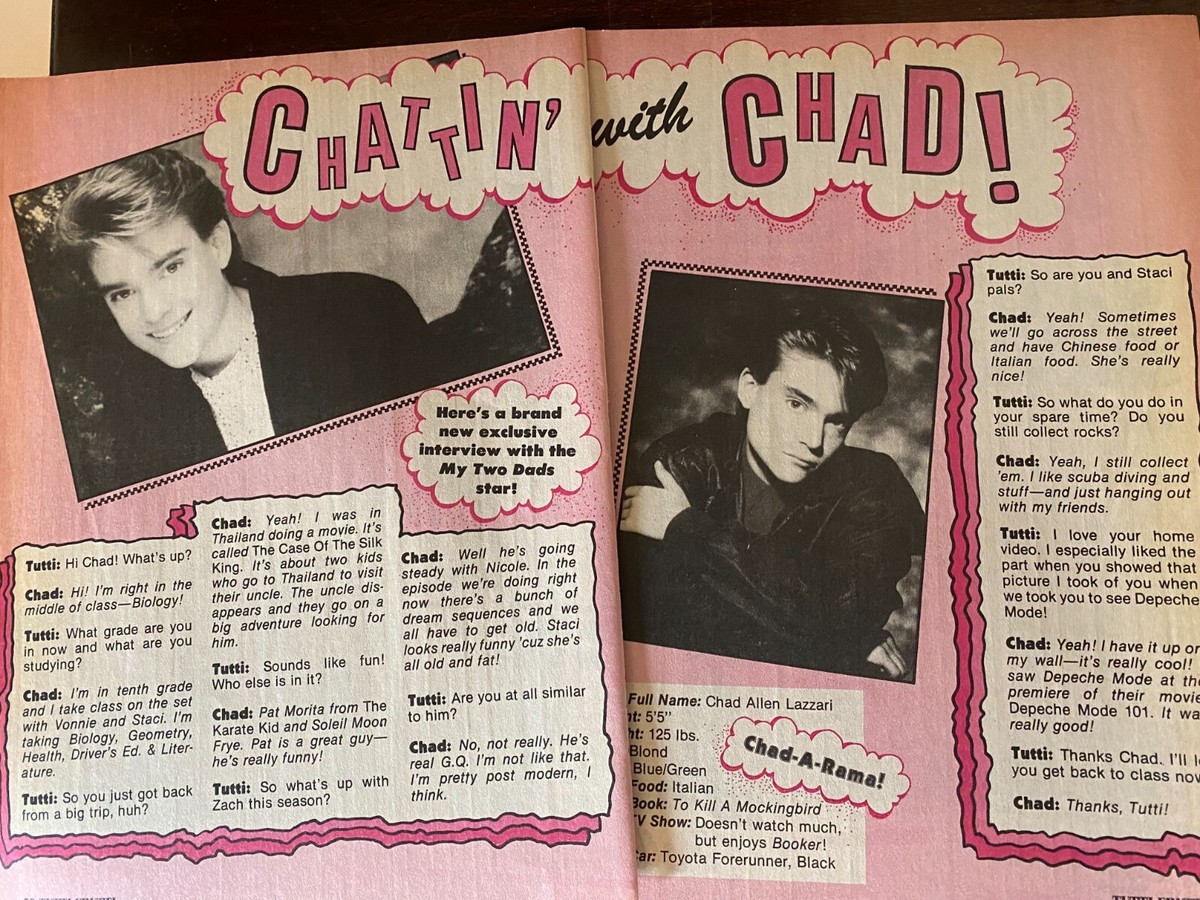 CHATTIN' with CHAD!
Here's a brand
new exclusive
interview with the
My Two Dads
star!
Tutti: Hi Chad! What's up?
Chad: Hi! I'm right in the
middle of class—Biology!
Tutti: What grade are you
in now and what are you
studying?
Chad: I'm in tenth grade
and I take class on the set
with Vonnie and Staci. I'm
taking Biology, Geometry,
Health, Driver's Ed. & Liter-
ature.
Tutti: So you just got back
from a big trip, huh?
Chad: Yeah! I was in
Thailand doing a movie. It's
called The Case Of The Silk
King. It's about two kids
who go to Thailand to visit
their uncle. The uncle dis-
appears and they go on a
big adventure looking for
him.
Tutti: Sounds like fun!
Who else is in it?
Chad: Pat Morita from The
Karate Kid and Soleil Moon
Frye. Pat is a great guy—
he's really funny!
Tutti: So what's up with
Zach this season?
Chad: Well he's going
steady with Nicole. In the
episode we're doing right
now there's a bunch of
dream sequences and we
all have to get old. Staci
looks really funny 'cuz she's
all old and fat!
Tutti: Are you at all similar
to him?
Chad: No, not really. He's
real G.Q. I'm not like that.
I'm pretty post modern, I
think.
Full Name: Chad Allen Lazzari
ht: 5'5"
ht: 125 lbs.
Blond
Blue/Green
Food: Italian
Book: To Kill A Mockingbird
TV Show: Doesn't watch much,
but enjoys Booker!
Car: Toyota Forerunner, Black
Chad-A-Rama!
Tutti: So are you and Staci
pals?
Chad: Yeah! Sometimes
we'll go across the street
and have Chinese food or
Italian food. She's really
nice!
Tutti: So what do you do in
your spare time? Do you
still collect rocks?
Chad: Yeah, I still collect
'em. I like scuba diving and
stuff—and just hanging out
with my friends.
Tutti: I love your home
video. I especially liked the
part when you showed that
picture I took of you when
we took you to see Depeche
Mode!
Chad: Yeah! I have it up on
my wall—it's really cool!
saw Depeche Mode at the
premiere of their movie
Depeche Mode 101. It was
really good!
Tutti: Thanks Chad. I'll
you get back to class now
Chad: Thanks, Tutti!